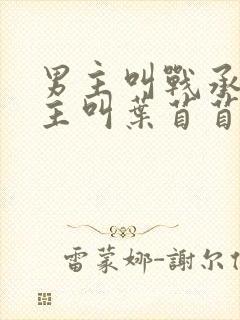 男主叫戰承
主叫葉苜苜
雷蒙娜-謝尔